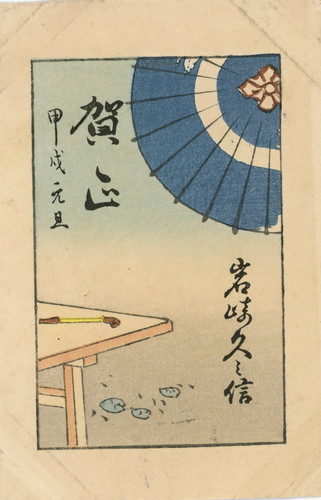 賀正
甲戌元旦
岩崎久之信